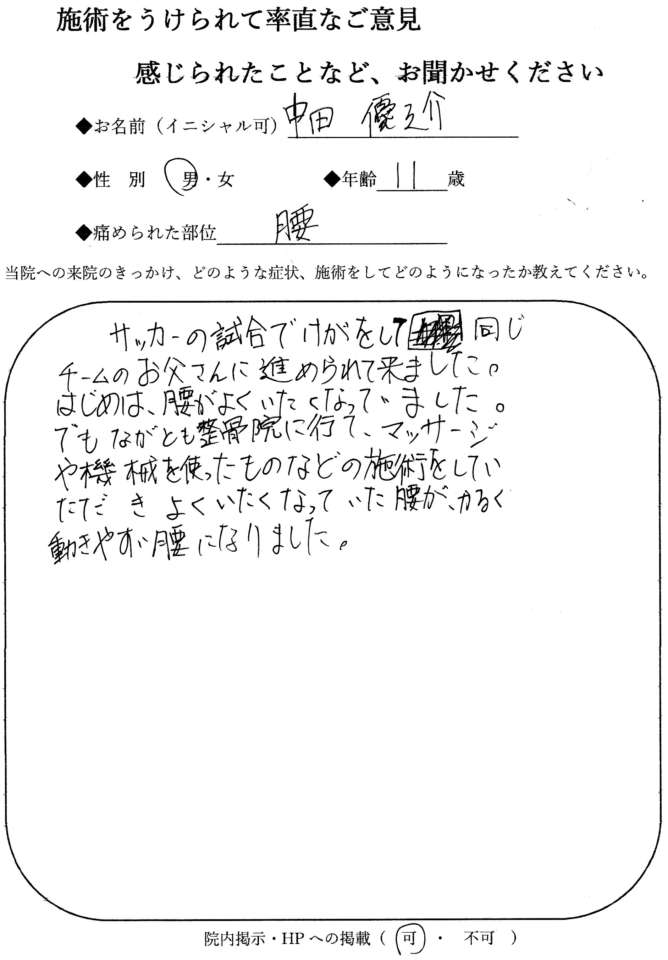 施術をうけられて率直なご意見
感じられたことなど、お聞かせください
◆お名前（イニシャル可） 中田 優之介
◆性 別 男・女 ◆年齢 11 歳
◆痛められた部位 腰
当院への来院のきっかけ、どのような症状、施術をしてどのようになったか教えてください。
サッカーの試合でけがをして 同じ
チームのお父さんに進められて来ました。
はじめは、腰がよくいたくなっていました。
でもながとも整骨院に行て、マッサージ
や機械を使ったものなどの施術をしてい
ただきよくいたくなっていた腰が、かるく
動きやすい腰になりました。
院内掲示・HPへの掲載（ 可 ・ 不可 ）